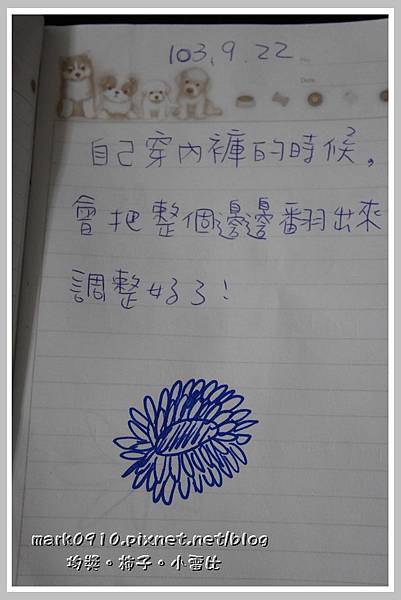 103.9.22
No.
Date.
自己穿內褲的時候,
會把整個邊邊翻出來
調整好了!
mark0910.pixnet.net/blog
柿子。小雪比